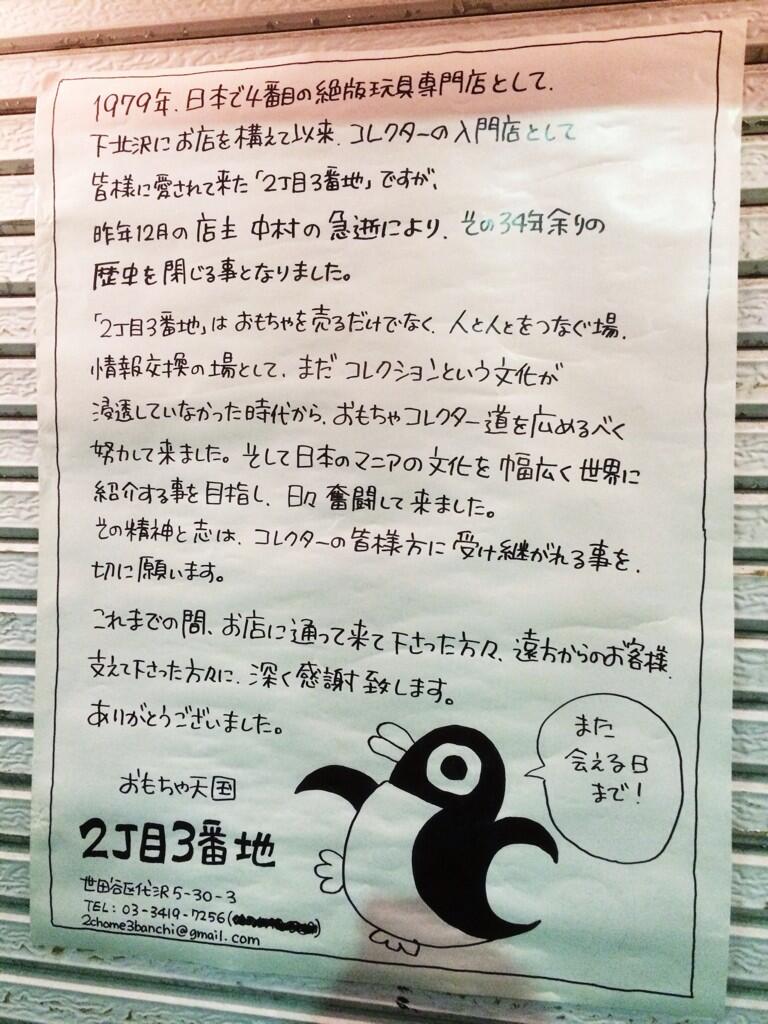 1979年、日本で4番目の絶版玩具専門店として、
下北沢にお店を構えて以来、コレクターの入門店として
皆様に愛されて来た「2丁目3番地」ですが、
昨年12月の店主 中村の急逝により、その34年余りの
歴史を閉じる事となりました。
「2丁目3番地」はおもちゃを売るだけでなく、人と人とをつなぐ場、
情報交換の場として、まだコレクションという文化が
浸透していなかった時代から、おもちゃコレクター道を広めるべく
努力して来ました。そして日本のマニアの文化を幅広く世界に
紹介する事を目指し、日々奮闘して来ました。
その精神と志は、コレクターの皆様方に受け継がれる事を、
切に願います。
これまでの間、お店に通って来て下さった方々、遠方からのお客様、
支えて下さった方々に、深く感謝致します。
ありがとうございました。
また
会える日
まで!
おもちゃ天国
2丁目3番地
世田谷区代沢5-30-3
TEL: 03-3419-7256
2chome3banchi@gmail.com